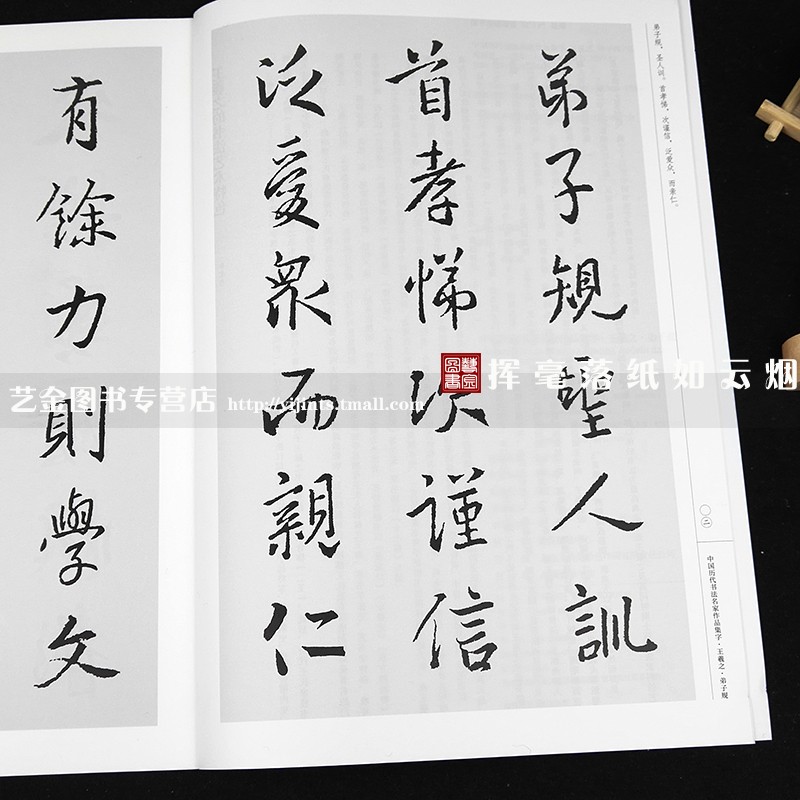 弟子規聖人訓
首孝悌次謹信
泛愛眾而親仁
有餘力則學文
弟子规，圣人训。首孝悌，次谨信。泛爱众，而亲仁。
〇二
中国历代书法名家作品集字·王羲之·弟子规
挥毫落纸如云烟
艺金图书专营店 http://yijints.tmall.com